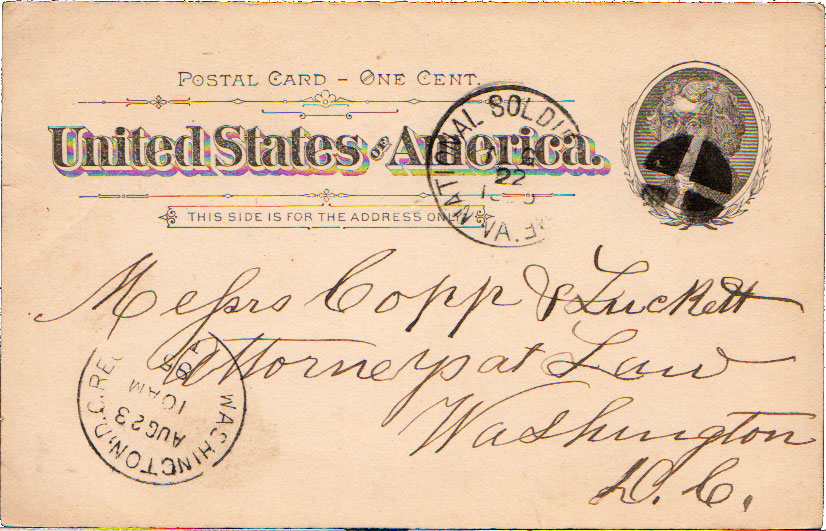 POSTAL CARD – ONE CENT.
United States OF America.
THIS SIDE IS FOR THE ADDRESS ONLY
NATIONAL SOLDI
22
VA.
Messrs Copp & Luckett
Attorneys at Law
Washington
D. C.
WASHINGTON, D.C. REC'
AUG 23
10 AM
95